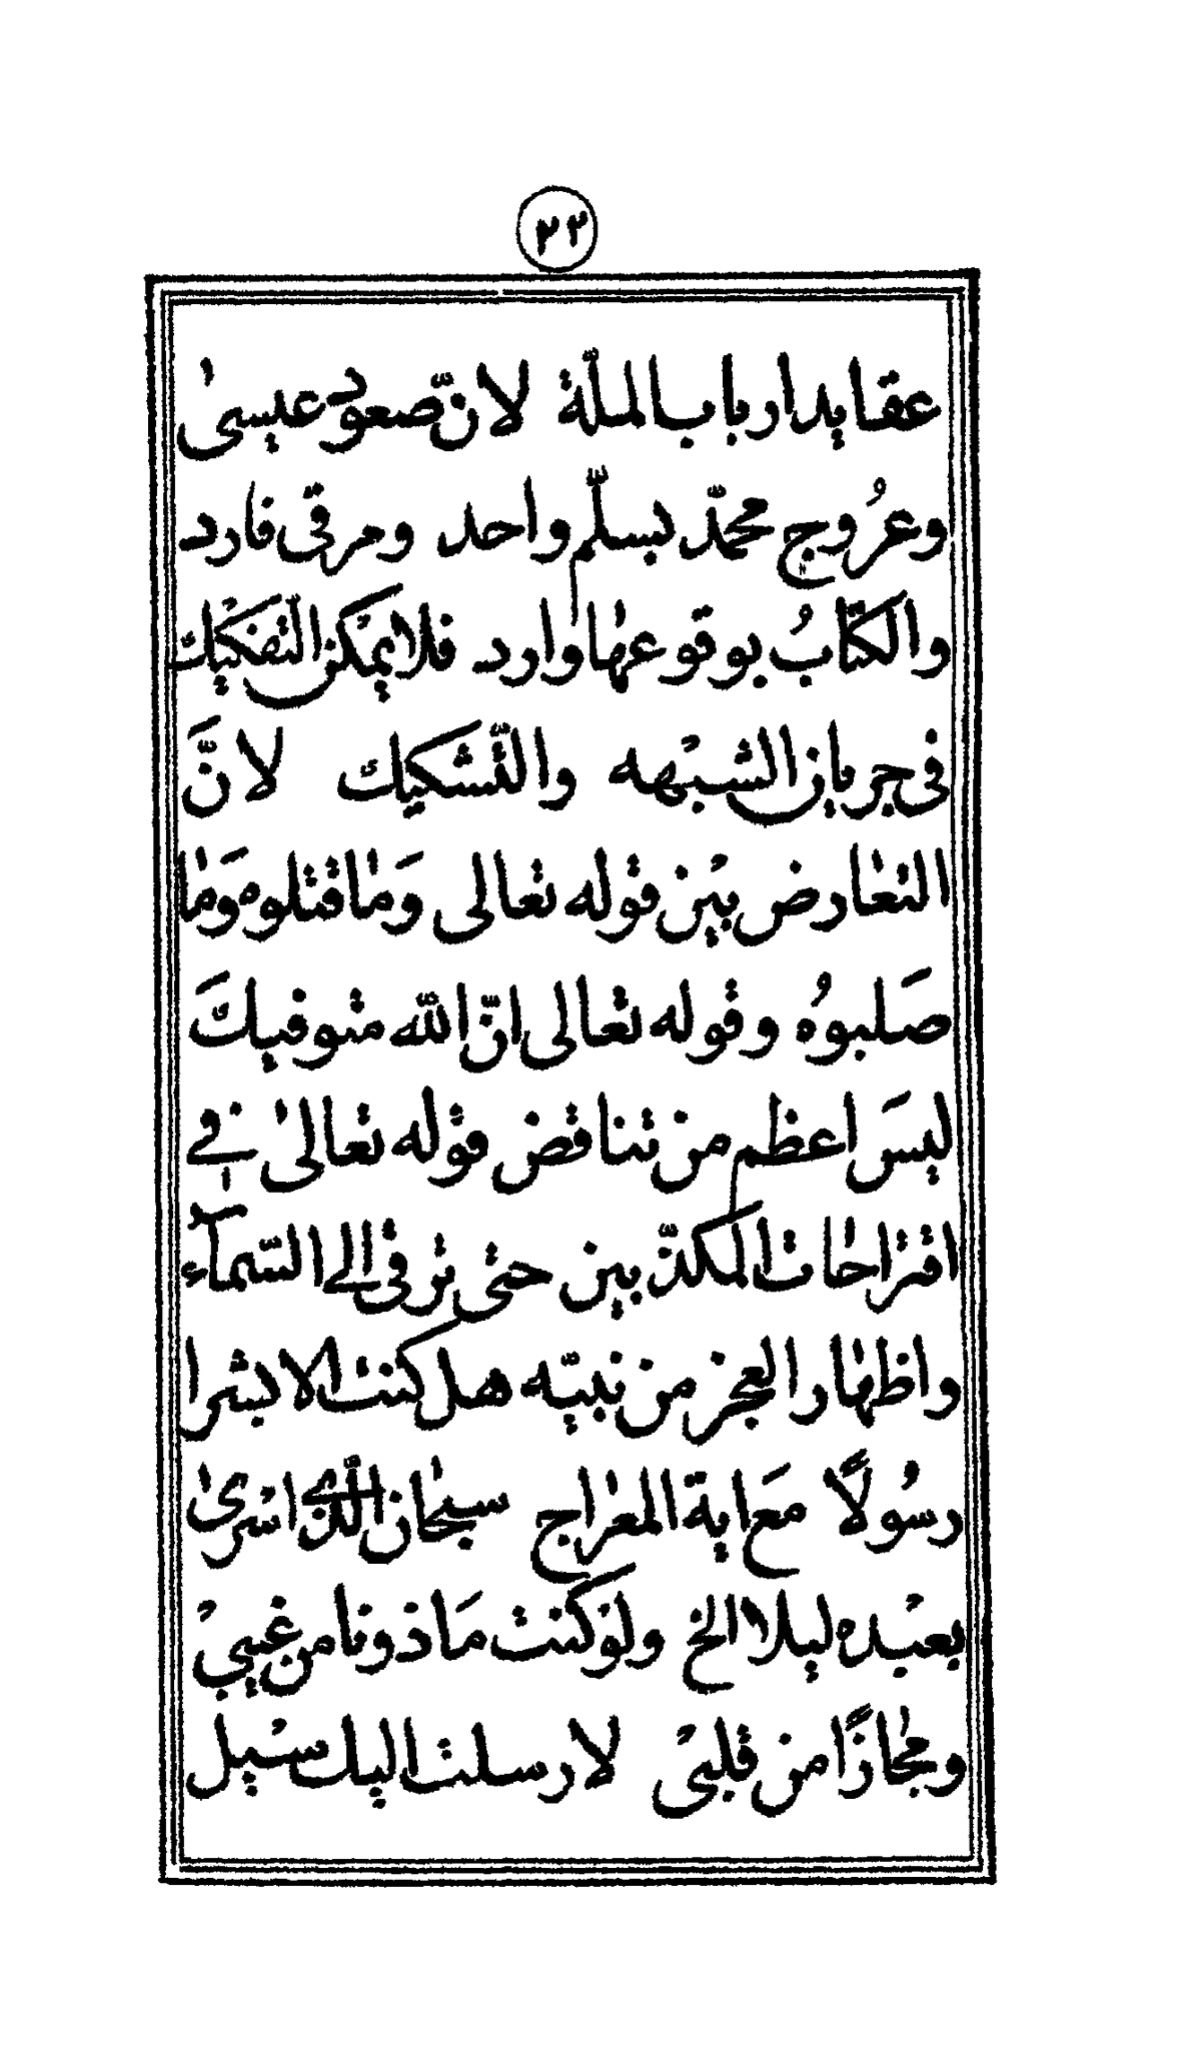 ٢٢
عقايد ارباب الملّة لانّ صعود عيسىٰ
وعرُوج محمّد بسلّم واحد ومرقى فارد
والكتابُ بوقوعهٰا وارد فلا يمكن التفكيك
فى جريان الشبْهه والتّشكيك لانَّ
التعٰارض بيْن قوله تعالى وَمٰا قتلوه وَمٰا
صَلبوُه وقوله تعالى انّ الله متوفيكَ
ليسَ اعظم من تناقض قوله تعالىٰ فے
اقتراحٰات المكذّبين حتى ترقى الے السّمآء
واظهٰار العجز من نبيّه هل كنت الا بشرا
رسُولًا مَع اية المعرٰاج سبحٰان الّذے اسْرىٰ
بعبْده ليلا الخ ولوْ كنت مَاذونا من غيبىْ
ومجٰازًا من قلبىْ لارسلت اليك سبيل